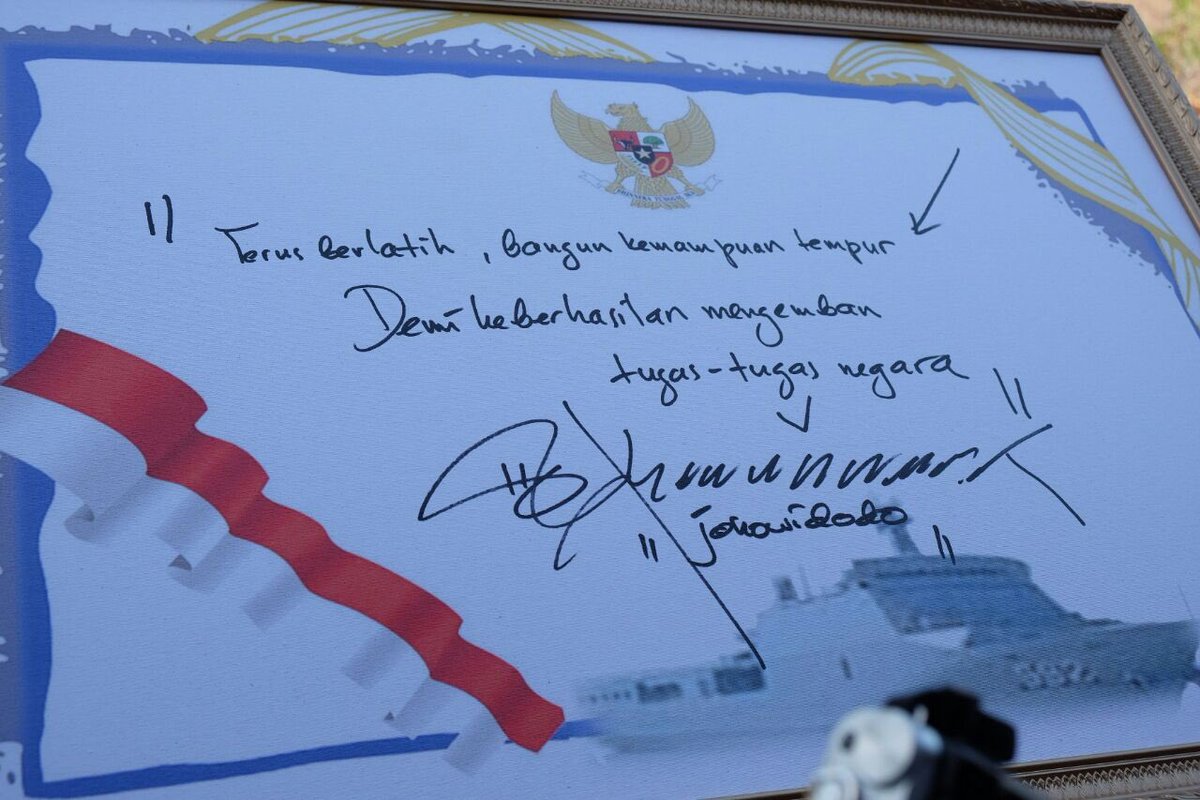 " Terus berlatih, bangun kemampuan tempur
Demi keberhasilan mengemban
tugas-tugas negara "
" jokowidodo "